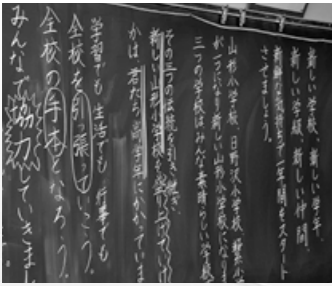 新しい学校、新しい学年、
新しい学級、新しい仲間、
新鮮な気持ちで一年間をスタート
させましょう。
山形小学校、日野沢小学校、繋小学
が一つになり新しい山形小学校になりま
三つの学校はみんな素晴らしい学校
その三つの伝統を引き継ぎ、
新しい山形小学校を創り上げていけ
かは君たち高学年にかかっていま
学習でも生活でも行事でも
全校を引っ張っていこう。
全校の手本となろう。
みんなで協力していきまし